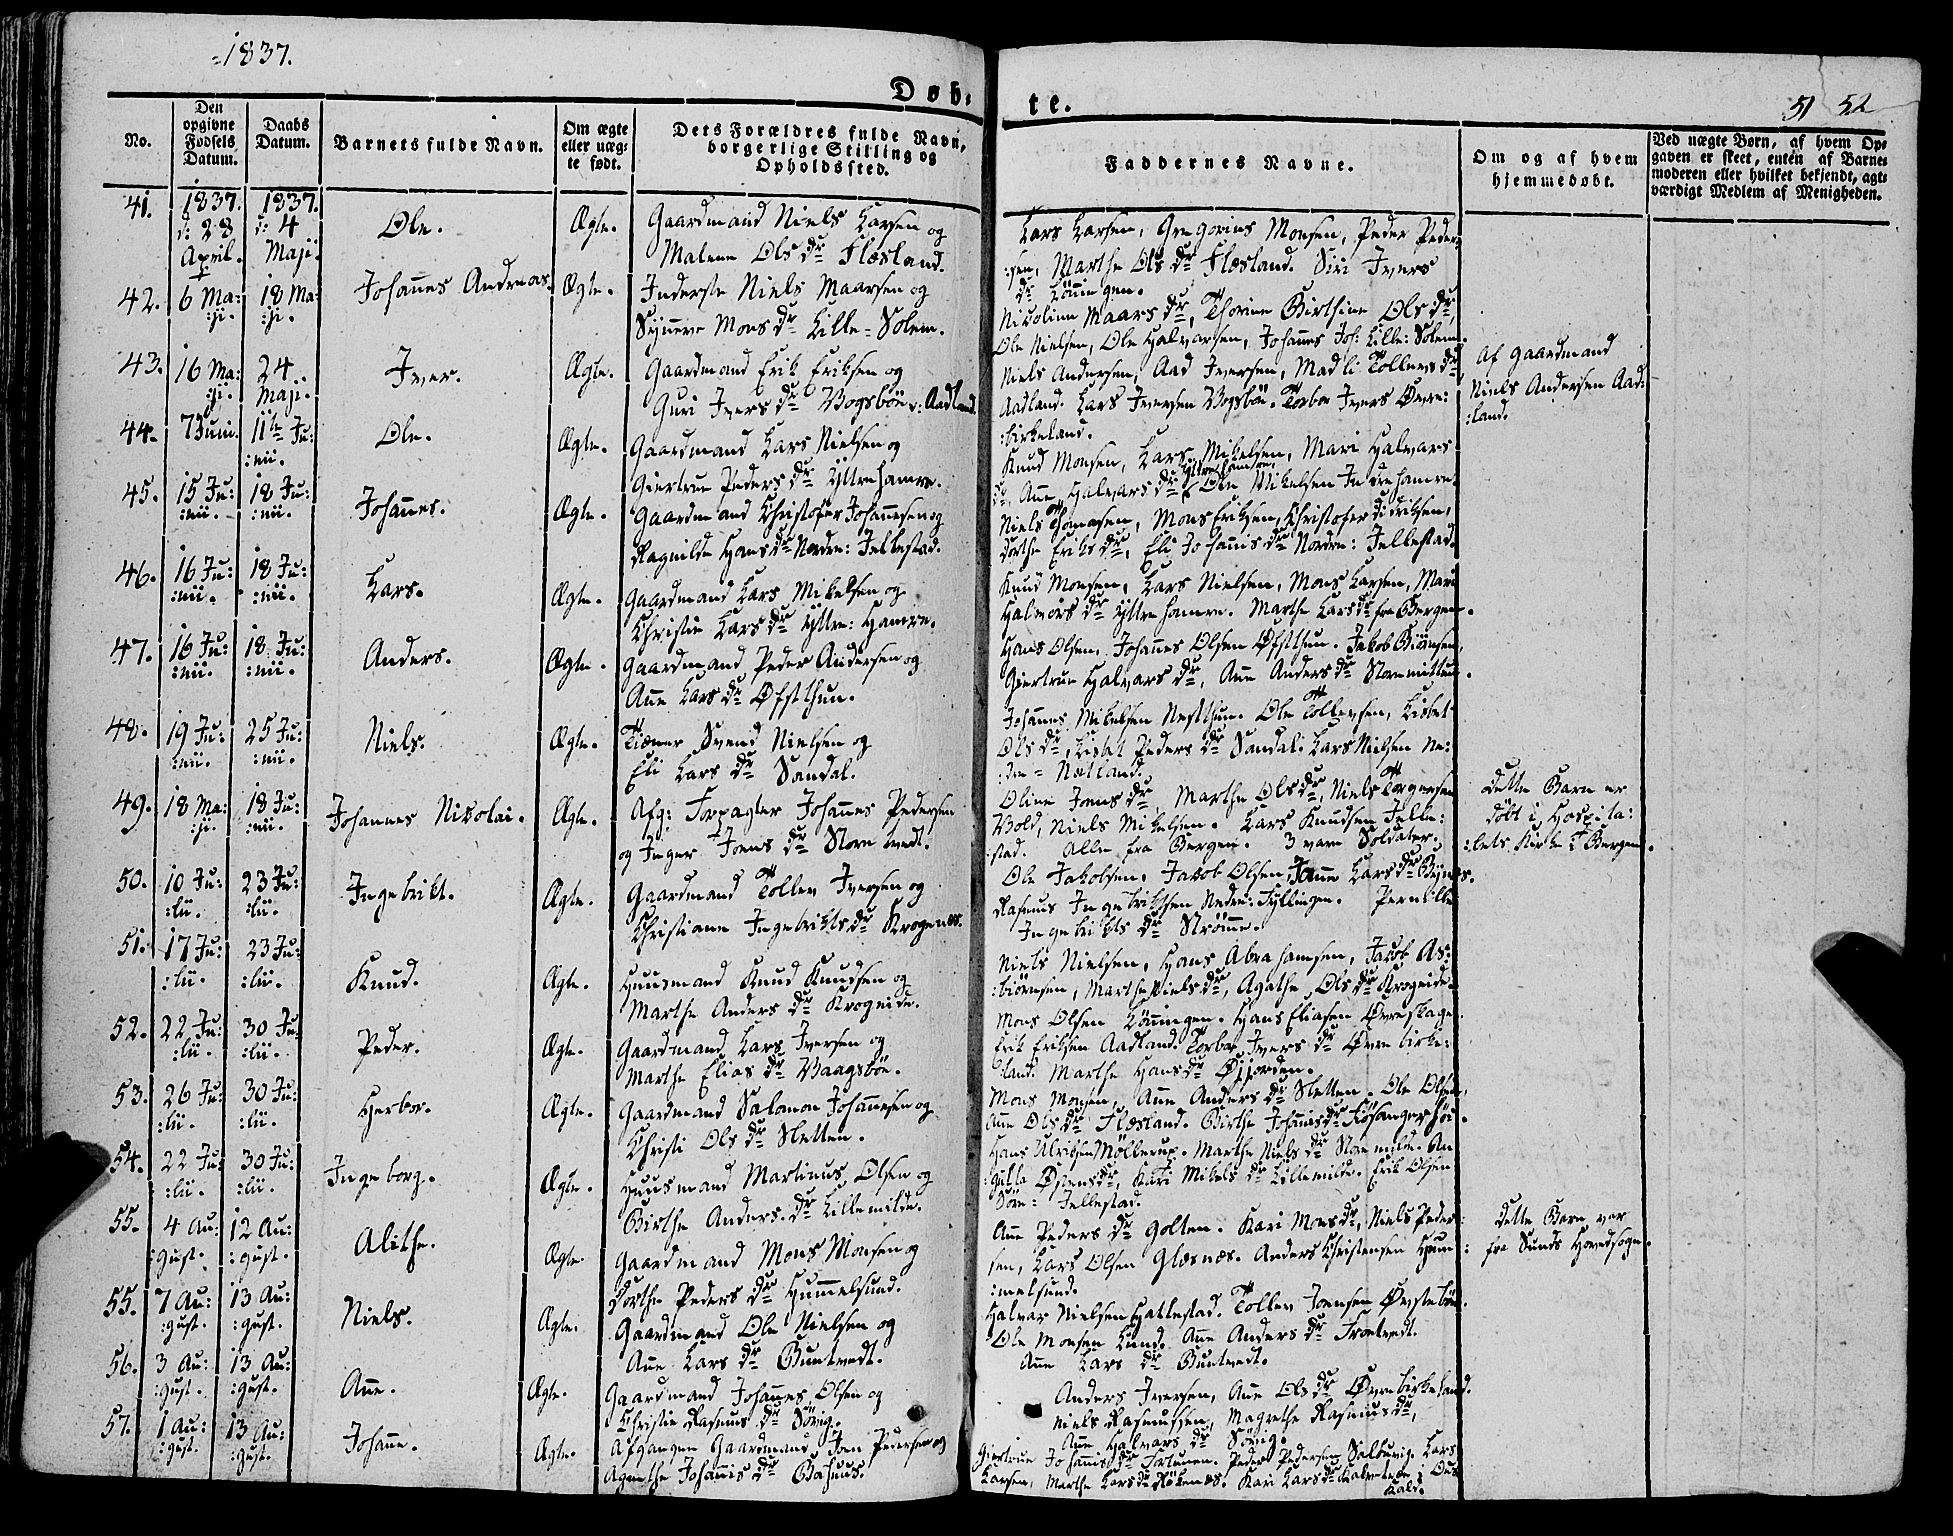 1837.
Døb-
te.
51 52
No.
Den opgivne Fødsels Datum.
Daabs Datum.
Barnets fulde Navn.
Om ægte eller uæg- te født.
Dets Forældres fulde Navn, borgerlige Stilling og Opholdssted.
Faddernes Navne.
Om og af hvem hjemmedøbt.
Ved uægte Børn, af hvem Op- gaven er skeet, enten af Barne- moderen eller hvilket bekjendt, agt- værdigt Medlem af Menigheden.
41. 1837. d: 28 April. 1837. d: 4 Maji. Ole. Ægte. Gaardmand Niels Larsen og
Malene Ols dr Flesland.
Lars Larsen, Gregorius Monsen, Peder Peder-
:sen, Marthe Ols dr Flesland. Siri Ivers
dr Lønningen.
42. 6 Ma: :ji. 18 Ma: :ji. Johannes Andreas. Ægte. Inderste Niels Maarsen og
Synneve Mons dr Lille-Solem.
Nicoline Maars dr, Thorine Birthine Ols dr,
Ole Nielsen, Ole Halvarsen, Johannes Joh: Lille-Solem.
43. 16 Ma: :ji. 24. Maji. Iver. Ægte. Gaardmand Erik Eriksen og
Guri Ivers dr Vogsbøe v: Aadland.
Niels Andersen, Aad Iversen, Madli Tollevs dr
Aadland. Lars Iversen Vogsbøe. Torbor Ivers Øvre:
:birkeland.
Af Gaardmand
Niels Andersen Aad:
:land.
44. 7 Juni. 11te Ju: :nii. Ole. Ægte. Gaardmand Lars Nielsen og
Giertrue Peders dr Yttrehamre.
Knud Monsen, Lars Mikelsen, Mari Halvars
dr, Ane Halvars dr Yttrehamre, Ole Mikelsen Indrehamre.
45. 15 Ju: :nii. 18 Ju: :nii. Johannes. Ægte. Gaardmand Christofer Johannesen og
Ragnilde Hans dr Nordre: Jellestad.
Niels Thomasen, Mons Eriksen, Christofer Didriksen,
Dorthe Eriks dr, Eli Johannis dr Nordre: Jellestad.
46. 16 Ju: :nii. 18 Ju: :nii. Lars. Ægte. Gaardmand Lars Mikelsen og
Christie Lars dr Yttre: Hamre.
Knud Monsen, Lars Nielsen, Mons Larsen, Mari
Halvors dr Yttrehamre. Marthe Lars dr fra Bergen.
47. 16 Ju: :nii. 18. Ju: :nii. Anders. Ægte. Gaardmand Peder Andersen og
Ane Lars dr Øfsthun.
Hans Olsen, Johannes Olsen Øfsthun. Jakob Biørnsen,
Giertrue Halvars dr, Ane Anders dr Storemittun.
48. 19 Ju: :nii. 25 Ju: :nii. Niels. Ægte. Tiener Svend Nielsen og
Eli Lars dr Sandal.
Johannes Mikelsen Nestthun. Ole Tollevsen, Lisbet
Ols dr, Lisbet Peders dr Sandal. Lars Nielsen Ne:
:dre-Natland.
49. 18 Ma: :ji. 18 Ju: :nii. Johannes Nikolai. Ægte. Afg: Forpagter Johannes Pedersen
og Inger Joens dr Storetvedt.
Oline Joens dr, Marthe Ols dr, Niels Torgersen
Vold, Niels Mikelsen. Lars Knudsen Jelle:
:stad. Alle fra Bergen. 3 vare Soldater.
Dette Barn er
døbt i Hospita:
:lets Kirke i Bergen.
50. 10 Ju: :lii. 23 Ju: :lii. Ingebrikt. Ægte. Gaardmand Tollev Iversen og
Christiane Ingebrikts dr Krogenes.
Ole Jakobsen, Jakob Olsen, Jane Lars dr Bønes.
Rasmus Ingebriktsen Nedre: Fyllingen. Pernille
Ingebrikts dr Strømme.
51. 17 Ju: :lii. 23 Ju: :lii. Knud. Ægte. Huusmand Knud Knudsen og
Marthe Anders dr Krogeide.
Niels Nielsen, Hans Abrahamsen, Jakob As:
:biørnsen, Marthe Niels dr, Agathe Ols dr Krogeide.
52. 22 Ju: :lii. 30 Ju: :lii. Peder. Ægte. Gaardmand Lars Iversen og
Marthe Elias dr Vaagsbøe.
Mons Olsen Lønningen. Hans Eliasen Øvreskage.
Erik Eriksen Aadland. Torbor Ivers dr Øvre birke:
:land. Marthe Hans dr Øijorden.
53. 26 Ju: :lii. 30 Ju: :lii. Herbor. Ægte. Gaardmand Salomon Johannesen og
Christi Ols dr Sletten.
Mons Monsen, Ane Anders dr Sletten. Ole Olsen,
Ane Ols dr Flesland. Birthe Johannis dr
54. 22 Ju: :lii. 30 Ju: :lii. Ingeborg. Ægte. Huusmand Martinus Olsen og
Birthe Anders dr Lillemilde.
Hans Ulriksen Møllerup. Marthe Niels dr Storemilde. An
:gilla Østens dr, Kari Mikels dr Lillemilde. Erik Olsen
Søre: Jellestad.
55. 4 Au: :gust. 12 Au: :gust. Alithe. Ægte. Gaardmand Mons Monsen og
Dorthe Peders dr Hummelsund.
Ane Peders dr Golten. Kari Mons dr, Niels Peder:
sen, Lars Olsen Glæsnæs. Anders Christensen Hum:
:melsund.
Dette Barn var
fra Sunds Hovedsogn.
55. 7 Au: :gust. 13 Au: :gust. Niels. Ægte. Gaardmand Ole Nielsen og
Ane Lars dr Buntvedt.
Halvar Nielsen Hallestad. Tollev Joensen Øvstebøe.
Ole Monsen Lund. Ane Anders dr Trontvedt.
Ane Lars dr Buntvedt.
56. 3 Au: :gust. 13 Au: :gust. Ane. Ægte. Gaardmand Johannes Olsen og
Christie Rasmus dr Søvig.
Anders Iversen, Ane Ols dr Øvrebirkeland.
Niels Rasmussen, Magrethe Rasmus dr,
Ane Halvars dr Søvig.
57. 1 Au: :gust. 13 Au: :gust. Johanne. Ægte. Afgangen Gaardmand Joen Pedersen og
Agnethe Johannis dr Bahuus.
Giertrue Johannis dr Fortunen. Peder Pedersen Selbuvig. Lars
Larsen, Marthe Lars dr Røkenes. Kari Lars dr